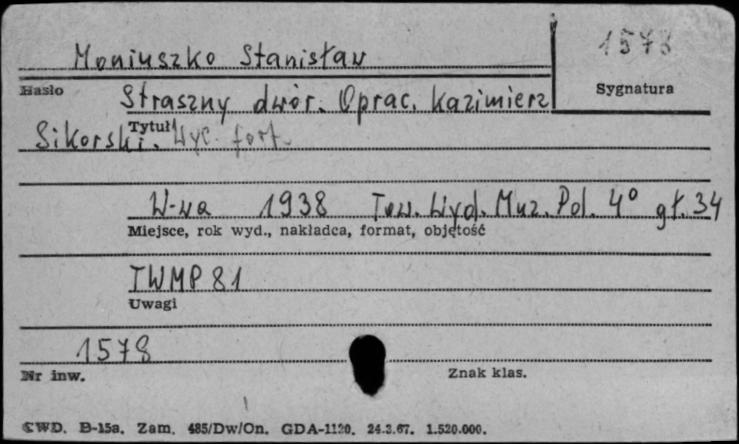 1578
Moniuszko Stanisław
Hasło
Sygnatura
Straszny dwór. Oprac. Kazimierz
Tytuł
Sikorski. Wyc. fort.
W-wa 1938 Tow. Wyd. Muz. Pol. 4° gł. 34
Miejsce, rok wyd., nakładca, format, objętość
TWMP 81
Uwagi
1578
Nr inw.
Znak klas.
CWD. B-15a. Zam. 485/Dw/On. GDA-1120. 24.3.67. 1.520.000.